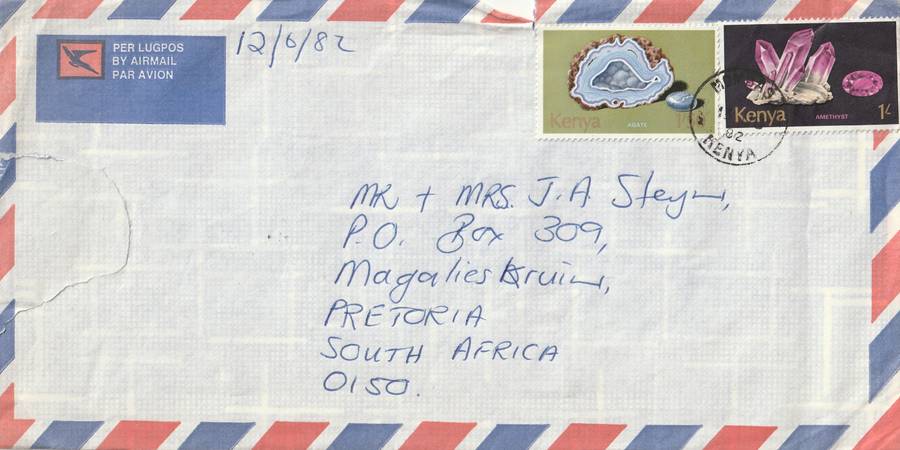 PER LUGPOS
BY AIRMAIL
PAR AVION
12/6/82
Kenya AGATE 1/-
Kenya AMETHYST 1/-
82
KENYA
MR + MRS. J.A. Steyn,
P.O. Box 309,
Magalieskruin,
PRETORIA
SOUTH AFRICA
0150.